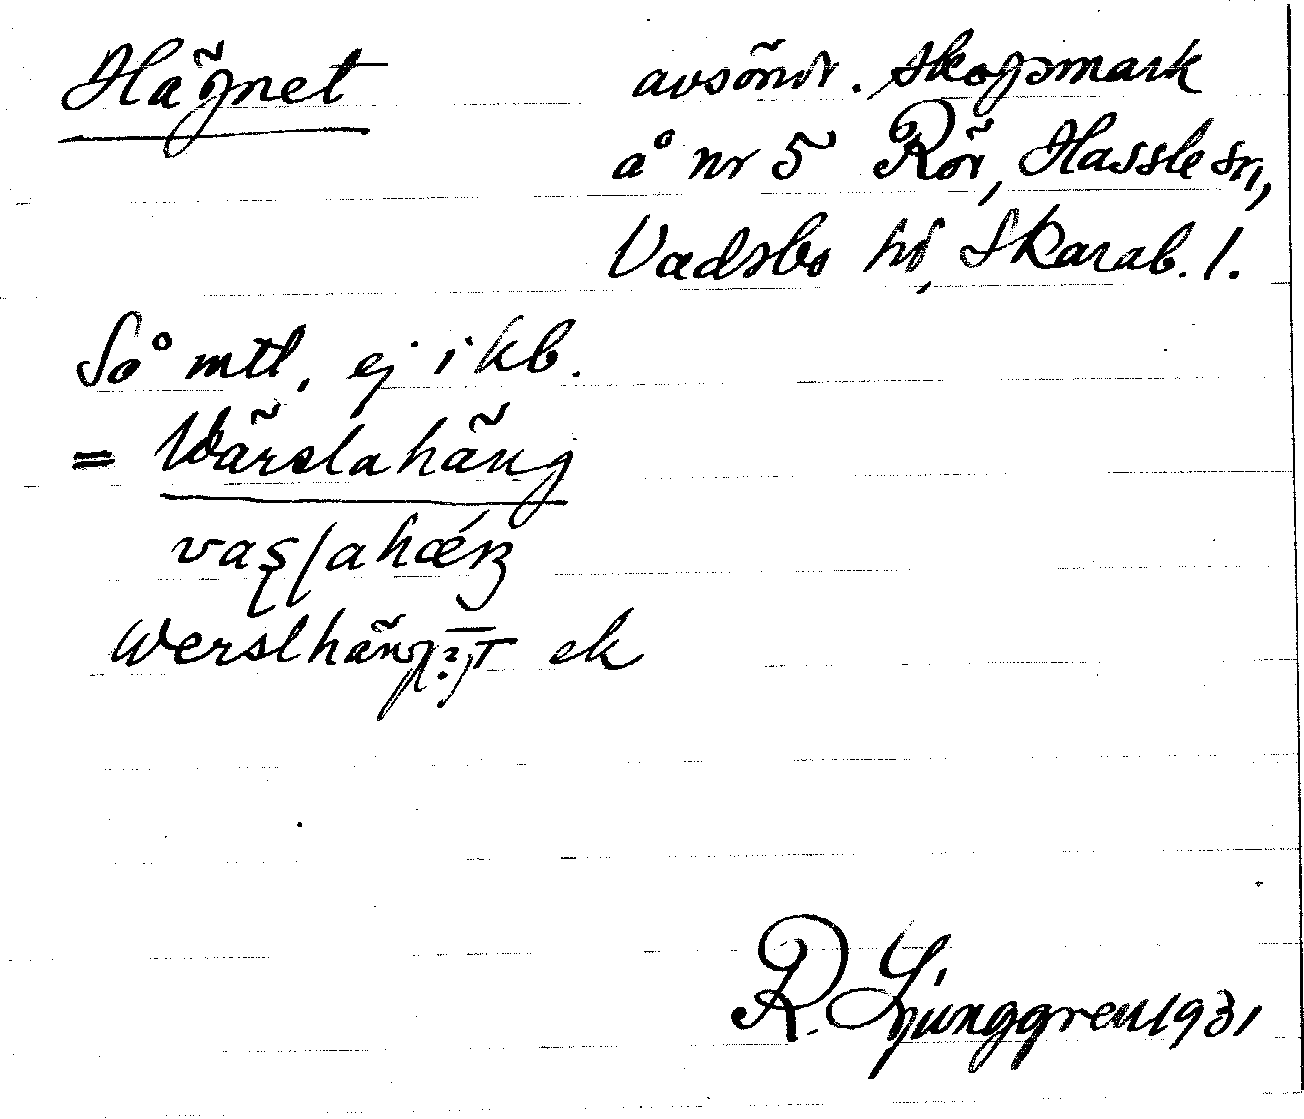 Hägnet avsöndr. skogsmark
å nr 5 Rör, Hassle sn,
Vadsbo hd, Skarab. l.
Så mtl, ej i kb.
= Värslahäng
Werslhäng ek
R. Ljunggren 1931